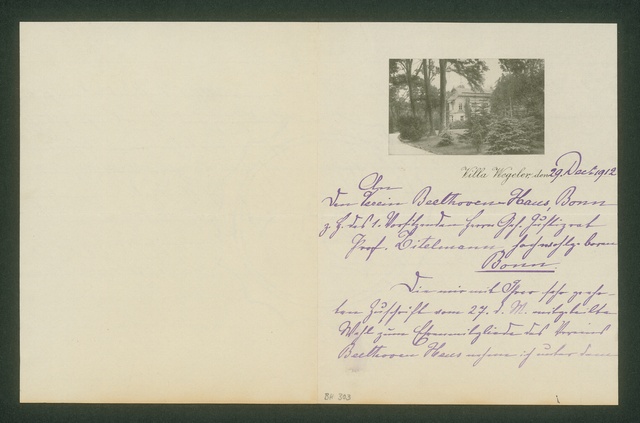 Villa Wegeler, den 29. Dec. 1912
An
Den Verein Beethoven-Haus, Bonn
z. H. des 1. Vorsitzenden Herrn Geh. Justizrat
Prof. Zitelmann, hochwohlgeboren
Bonn
Die mir mit Ihrer sehr geehr-
ten Zuschrift vom 27. d. M. mitgeteilte
Wahl zum Ehrenmitgliede des Vereins
Beethoven Haus nehme ich unter dem
BH 303